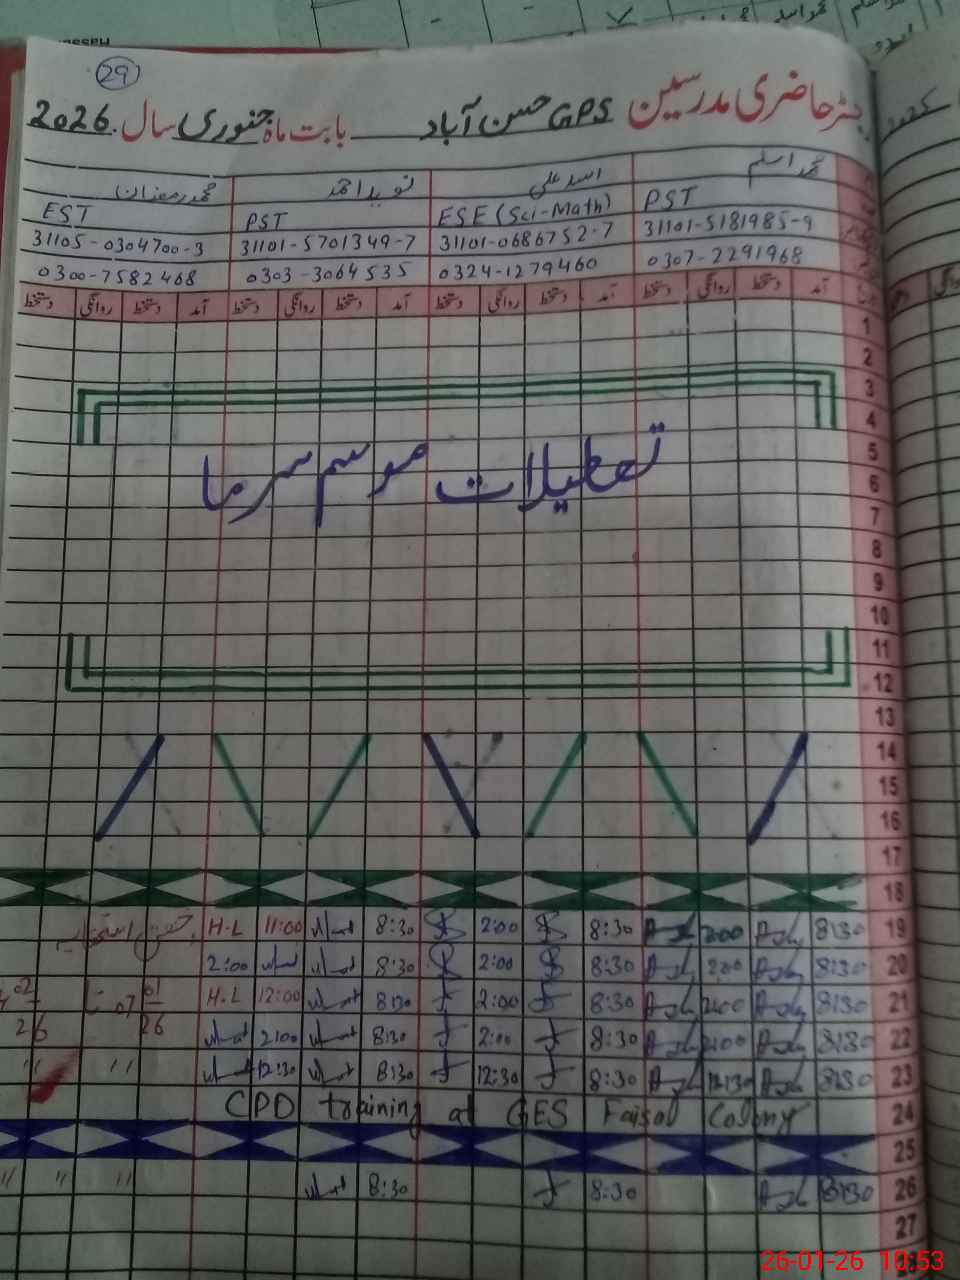 29
رجسٹر حاضری مدرسین GPS حسن آباد بابت ماہ جنوری سال 2026
محمد اسلم اسد علی نوید احمد محمد رمضان
PST ESE (Sci-Math) PST EST
31101-5181985-9 31101-0686752-7 31101-5701349-7 31105-0304700-3
0307-2291968 0324-1279460 0303-3064535 0300-7582468
آمد دستخط روانگی دستخط آمد دستخط روانگی دستخط آمد دستخط روانگی دستخط آمد دستخط روانگی دستخط
1
2
3
4
5
تعطیلات موسم سرما
6
7
8
9
10
11
12
13
14
15
16
17
18
19 8:30 2:00 8:30 2:00 8:30 11:00 H-L
20 8:30 2:00 8:30 2:00 8:30 2:00
21 8:30 2:00 8:30 2:00 8:30 12:00 H-L
22 8:30 2:00 8:30 2:00 8:30 2:00
23 8:30 12:30 8:30 12:30 8:30 12:30 " "
24 CPD training at GES Faisal Colony
25
26 8:30 8:30 8:30 " " "
27
26-01-26 10:53